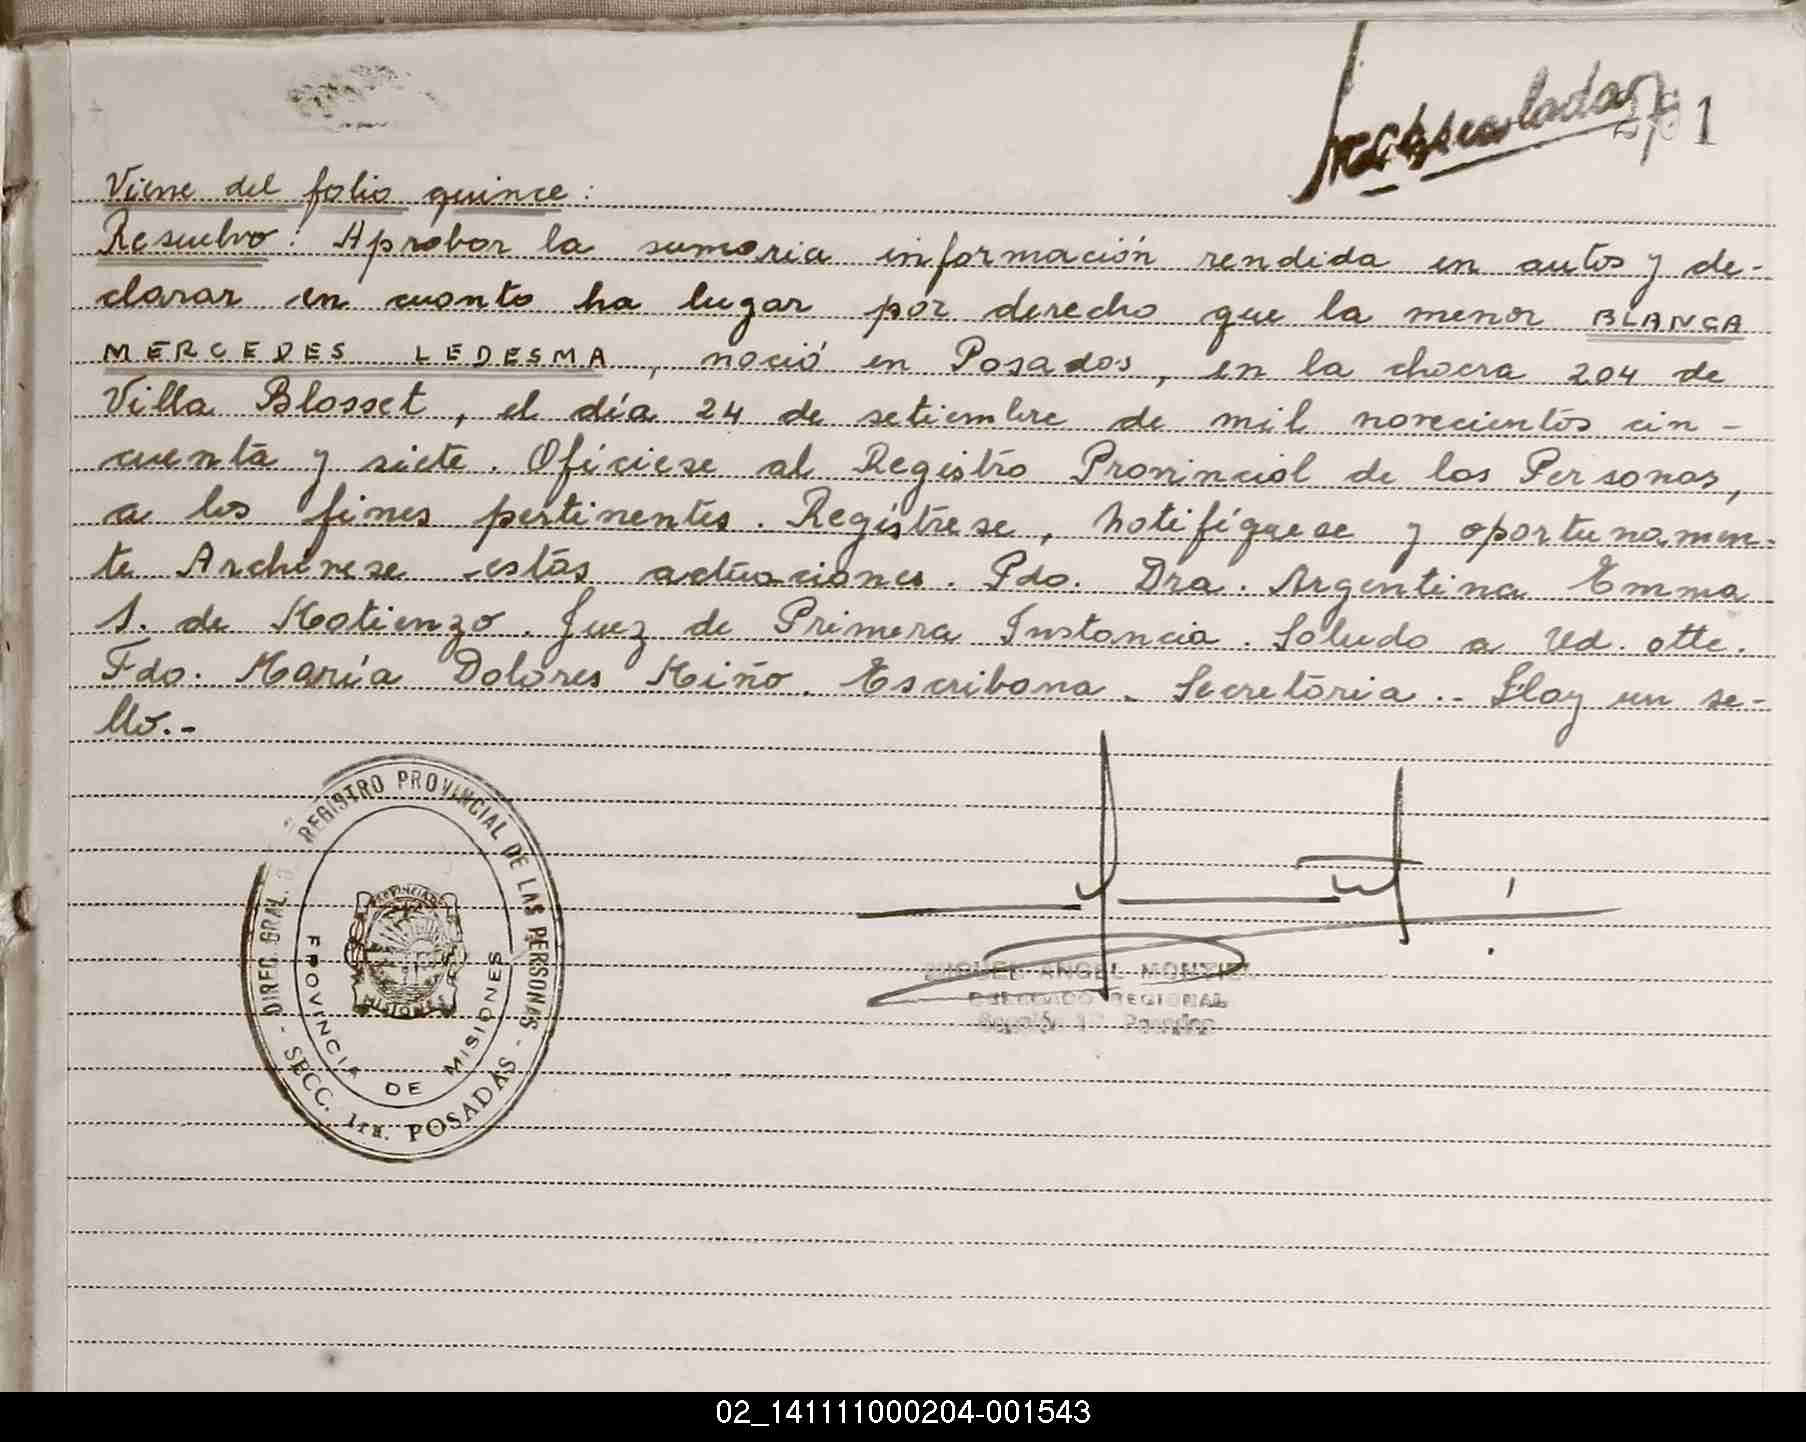 Viene del folio quince:
Resuelvo: Aprobar la sumaria información rendida en autos y de-
clarar en cuanto ha lugar por derecho que la menor BLANCA
MERCEDES LEDESMA, nació en Posadas, en la chacra 204 de
Villa Blosset, el día 24 de setiembre de mil novecientos cin-
cuenta y siete. Ofíciese al Registro Provincial de las Personas,
a los fines pertinentes. Regístrese, notifíquese y oportunamen-
te Archívese estas actuaciones. Fdo. Dra. Argentina Emma
S. de Matienzo. Juez de Primera Instancia. Saludo a Ud. atte.
Fdo. María Dolores Miño. Escribana. Secretaria.. Hay un se-
llo.-
DIREC. GRAL. REGISTRO PROVINCIAL DE LAS PERSONAS - SECC. 1ra. POSADAS -
PROVINCIA DE MISIONES
MISIONES
ANGEL
DELEGADO REGIONAL
02_141111000204-001543